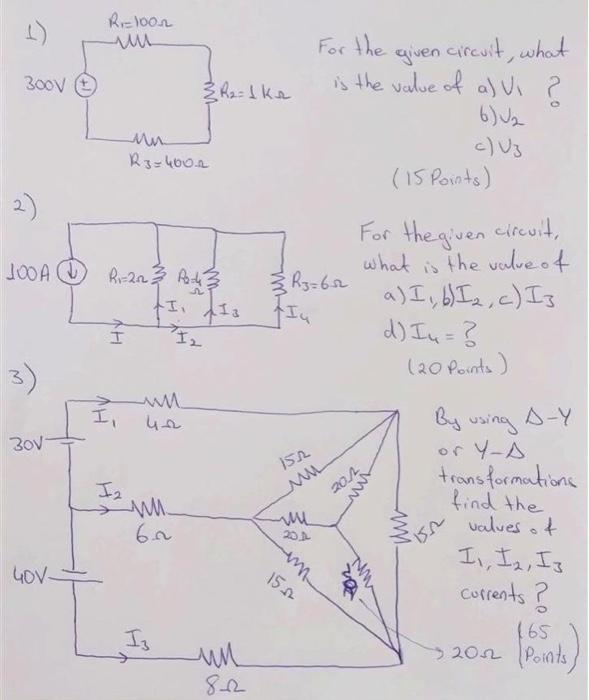 1)
R₁=100Ω
300V
R₂=1KΩ
R3=400Ω
For the given circuit, what
is the value of a) V₁ ?
b) V₂
c) V3
(15 Points)
2)
100A
R₁=2Ω
R₂=4Ω
R3=6Ω
I₁
I3
I₄
I
I₂
For the given circuit,
what is the value of
a) I₁, b) I₂, c) I3
d) I₄ = ?
(20 Points)
3)
I₁
4Ω
30V
I₂
6Ω
40V
I3
8Ω
15Ω
20Ω
20Ω
15Ω
15Ω
20Ω
By using Δ-Y
or Y-Δ
transformations
find the
values of
I₁, I₂, I3
currents ?
(65
Points)